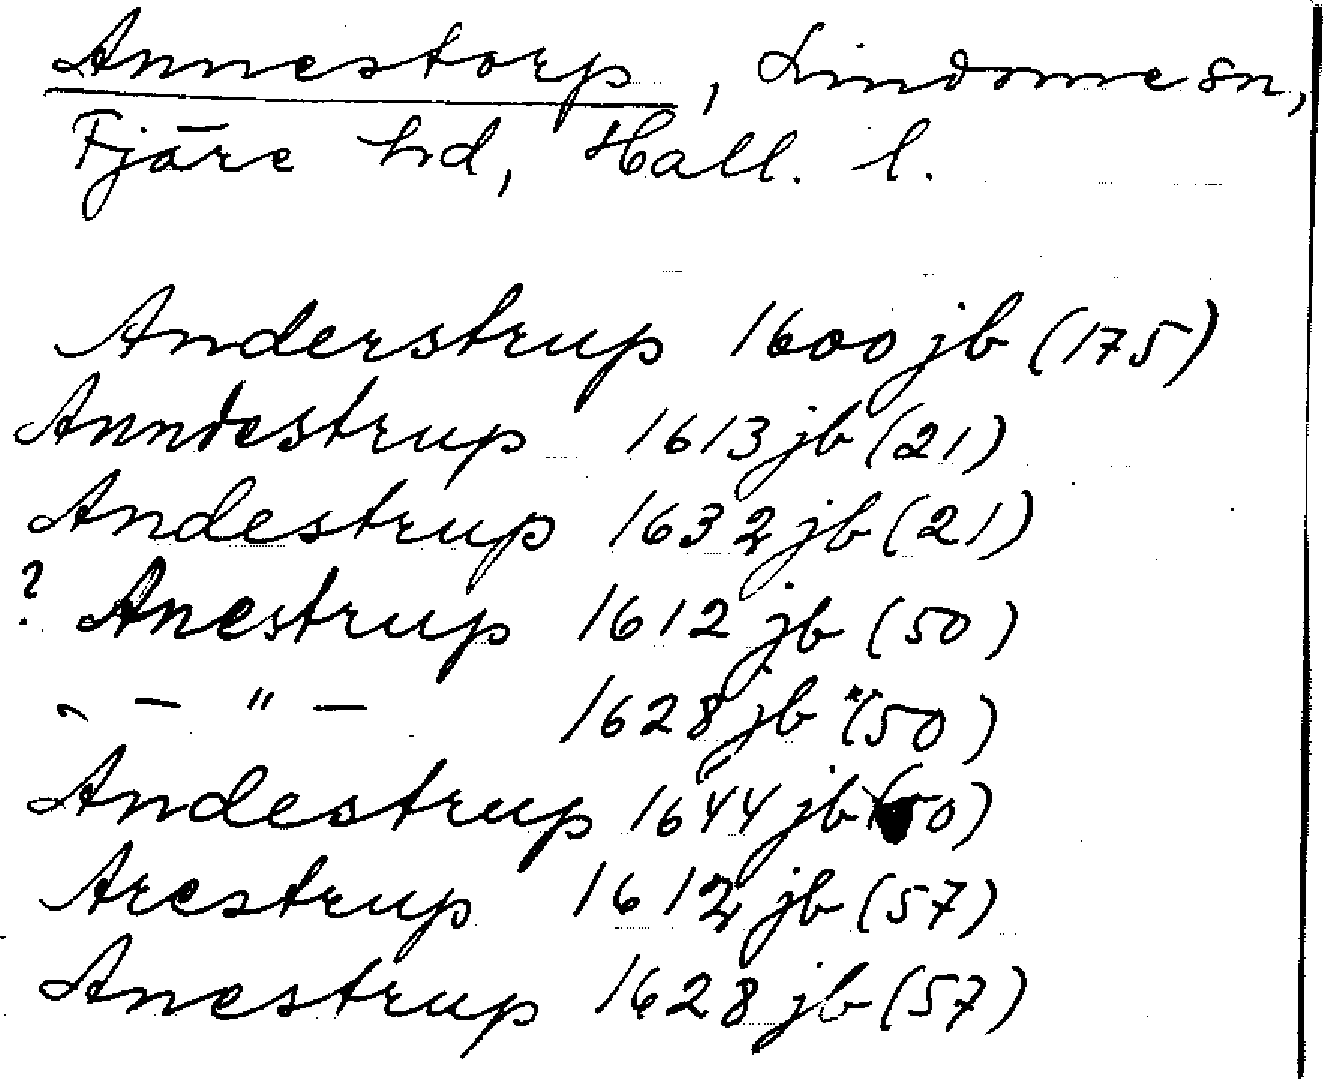 Annestorp, Lindome sn,
Fjäre hd, Hall. l.
Anderstrup 1600 jb (175)
Anndestrup 1613 jb (21)
Andestrup 1632 jb (21)
? Anestrup 1612 jb (50)
- — " — 1628 jb (50)
Andestrup 1644 jb (50)
Arestrup 1612 jb (57)
Anestrup 1628 jb (57)